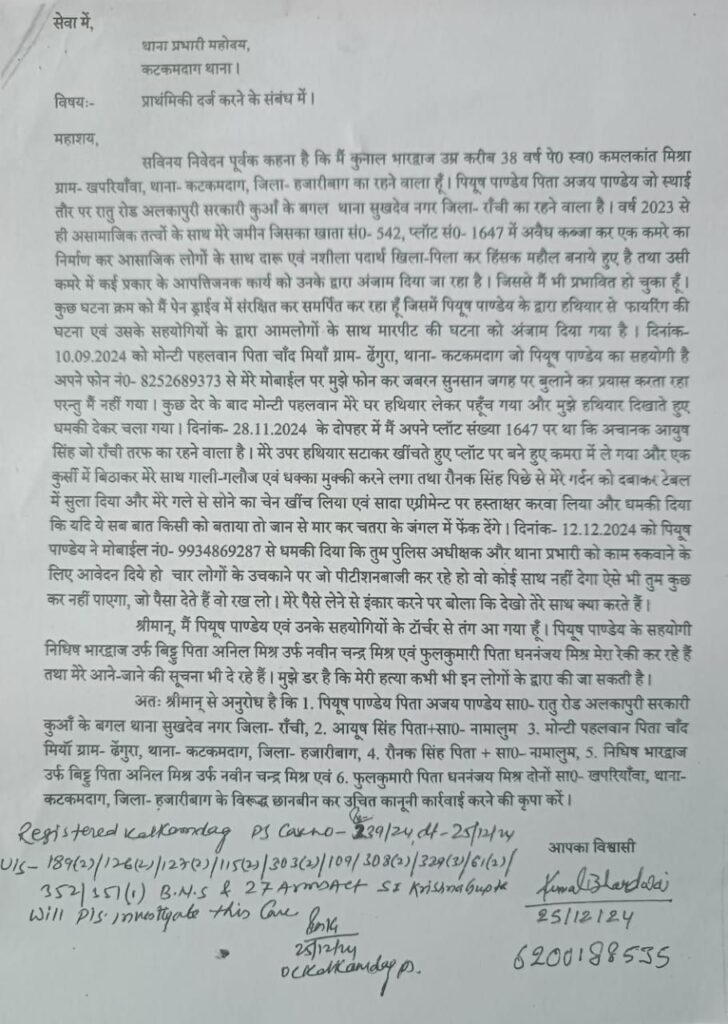 सेवा में,
थाना प्रभारी महोदय,
कटकमदाग थाना।
विषयः- प्राथंमिकी दर्ज करने के संबंध में।
महाशय,
सविनय निवेदन पूर्वक कहना है कि मैं कुनाल भारद्वाज उम्र करीब 38 वर्ष पे0 स्व0 कमलकांत मिश्रा
ग्राम- खपरियाँवा, थाना- कटकमदाग, जिला- हजारीबाग का रहने वाला हूँ। पियूष पाण्डेय पिता अजय पाण्डेय जो स्थाई
तौर पर रातु रोड अलकापुरी सरकारी कुआँ के बगल थाना सुखदेव नगर जिला- राँची का रहने वाला है। वर्ष 2023 से
ही असामाजिक तत्वों के साथ मेरे जमीन जिसका खाता सं0- 542, प्लॉट सं0- 1647 में अवैध कब्जा कर एक कमरे का
निर्माण कर आसाजिक लोगों के साथ दारू एवं नशीला पदार्थ खिला-पिला कर हिंसक महौल बनाये हुए है तथा उसी
कमरे में कई प्रकार के आपत्तिजनक कार्य को उनके द्वारा अंजाम दिया जा रहा है। जिससे मैं भी प्रभावित हो चुका हूँ।
कुछ घटना क्रम को मैं पेन ड्राईव में संरक्षित कर समर्पित कर रहा हूँ जिसमें पियूष पाण्डेय के द्वारा हथियार से फायरिंग की
घटना एवं उसके सहयोगियों के द्वारा आमलोगों के साथ मारपीट की घटना को अंजाम दिया गया है। दिनांक-
10.09.2024 को मोन्टी पहलवान पिता चाँद मियाँ ग्राम- ढेंगुरा, थाना- कटकमदाग जो पियूष पाण्डेय का सहयोगी है
अपने फोन नं0- 8252689373 से मेरे मोबाईल पर मुझे फोन कर जबरन सुनसान जगह पर बुलाने का प्रयास करता रहा
परन्तु मैं नहीं गया। कुछ देर के बाद मोन्टी पहलवान मेरे घर हथियार लेकर पहूँच गया और मुझे हथियार दिखाते हुए
धमकी देकर चला गया। दिनांक- 28.11.2024 के दोपहर में मैं अपने प्लॉट संख्या 1647 पर था कि अचानक आयुष
सिंह जो राँची तरफ का रहने वाला है। मेरे उपर हथियार सटाकर खींचते हुए प्लॉट पर बने हुए कमरा में ले गया और एक
कुर्सी में बिठाकर मेरे साथ गाली-गलौज एवं धक्का मुक्की करने लगा तथा रौनक सिंह पिछे से मेरे गर्दन को दबाकर टेबल
में सुला दिया और मेरे गले से सोने का चेन खींच लिया एवं सादा एग्रीमेन्ट पर हस्ताक्षर करवा लिया और धमकी दिया
कि यदि ये सब बात किसी को बताया तो जान से मार कर चतरा के जंगल में फेंक देंगे। दिनांक- 12.12.2024 को पियूष
पाण्डेय ने मोबाईल नं0- 9934869287 से धमकी दिया कि तुम पुलिस अधीक्षक और थाना प्रभारी को काम रूकवाने के
लिए आवेदन दिये हो चार लोगों के उचकाने पर जो पीटीशनबाजी कर रहे हो वो कोई साथ नहीं देगा ऐसे भी तुम कुछ
कर नहीं पाएगा, जो पैसा देते हैं वो रख लो। मेरे पैसे लेने से इंकार करने पर बोला कि देखो तेरे साथ क्या करते हैं।
श्रीमान्, मैं पियूष पाण्डेय एवं उनके सहयोगियों के टॉर्चर से तंग आ गया हूँ। पियूष पाण्डेय के सहयोगी
निधिष भारद्वाज उर्फ बिट्टु पिता अनिल मिश्र उर्फ नवीन चन्द्र मिश्र एवं फुलकुमारी पिता धननंजय मिश्र मेरा रेकी कर रहे हैं
तथा मेरे आने-जाने की सूचना भी दे रहे हैं। मुझे डर है कि मेरी हत्या कभी भी इन लोगों के द्वारा की जा सकती है।
अतः श्रीमान् से अनुरोध है कि 1. पियूष पाण्डेय पिता अजय पाण्डेय सा0- रातु रोड अलकापुरी सरकारी
कुआँ के बगल थाना सुखदेव नगर जिला- राँची, 2. आयूष सिंह पिता+सा0- नामालुम 3. मोन्टी पहलवान पिता चाँद
मियाँ ग्राम- ढेंगुरा, थाना- कटकमदाग, जिला- हजारीबाग, 4. रौनक सिंह पिता + सा0- नामालुम, 5. निधिष भारद्वाज
उर्फ बिट्टु पिता अनिल मिश्र उर्फ नवीन चन्द्र मिश्र एवं 6. फुलकुमारी पिता धननंजय मिश्र दोनों सा0- खपरियाँवा, थाना-
कटकमदाग, जिला- हजारीबाग के विरूद्ध छानबीन कर उचित कानूनी कार्रवाई करने की कृपा करें।
Registered Katkamdag PS Case no- 239/24, dt- 25/12/24
U/S- 189(2)/126(2)/127(2)/115(2)/303(2)/109/308(2)/329(3)/61(2)/
352/351(1) B.N.S & 27 Arms Act SI Krishna Gupta
Will Pls. investigate this Case
25/12/24
OC Katkamdag PS.
आपका विश्वासी
Kunal Bhardwaj
25/12/24
6200188535